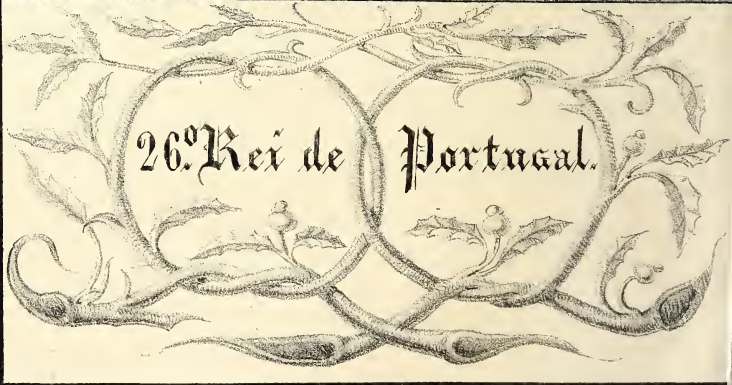 26.º Rei de Portugal.